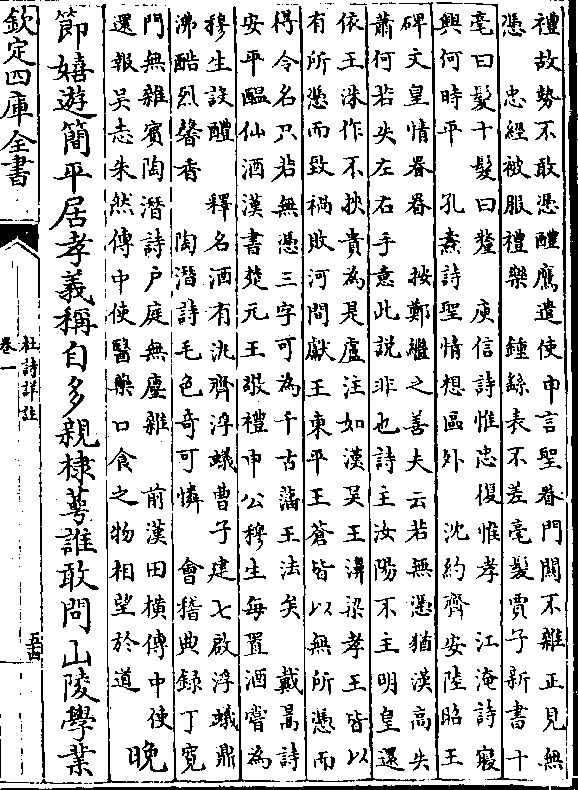 禮故勢不敢憑醴鷹遣使中言聖眷門闌不雜正見無
憑　忠經被服禮樂　鍾繇表不差毫髮賈子新書十
毫曰髮十髮曰釐　庾信詩惟忠復惟孝　江淹詩寢
興何時平　孔熹詩聖情想區外　沈約齊安陸昭王
碑文皇情眷眷　按鄭繼之善夫云若無憑猶漢高失
蕭何若失左右手意此說非也詩主汝陽不主明皇還
依王洙作不挾貴為是盧注如漢吳王濞梁孝王皆以
有所憑而致禍敗河間獻王東平王蒼皆以無所憑而
得令名只若無憑三字可為千古藩王法矣　戴暠詩
安平醖仙酒漢書楚元王敬禮申公穆生每置酒嘗為
穆生設醴　釋名酒有汎齊浮蟻曹子建七啟浮蟻鼎
沸酷烈馨香　陶潛詩毛色奇可憐　會稽典録丁寛
門無雜賓陶潛詩户庭無塵雜　前漢田横傳中使
還報吳志朱然傳中使醫藥口食之物相望於道
晚
節嬉遊簡平居孝義稱自多親棣萼誰敢問山陵學業
欽定四庫全書
杜詩詳註
卷一